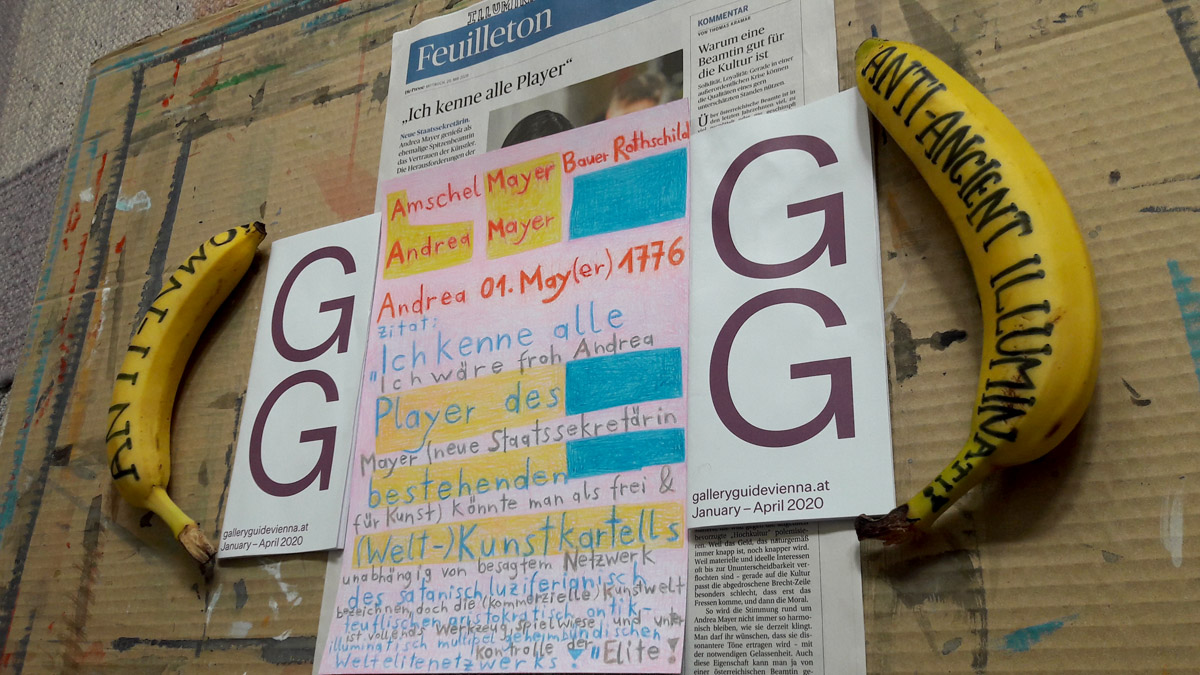 Feuilleton
Die Presse
„Ich kenne alle Player“
Neue Staatssekretärin.
Andrea Mayer genießt als
ehemalige Spitzenbeamtin
das Vertrauen der Künstler.
Die Herausforderungen der
KOMMENTAR
VON THOMAS KRAMAR
Warum eine
Beamtin gut für
die Kultur ist
Solidität, Loyalität: Gerade in einer
außerordentlichen Krise können
die Qualitäten eines gern
unterschätzten Standes nützen.
Amschel Mayer Bauer Rothschild
Andrea Mayer
Andrea 01. May(er) 1776
Zitat:
"Ich kenne alle
Ich wäre froh Andrea
Player des
Mayer (neue Staatssekretärin
bestehenden
für Kunst) könnte man als frei &
(Welt-)Kunstkartells
unabhängig von besagtem Netzwerk
des satanisch luziferianisch
bezeichnen, doch die (kommerzielle) Kunstwelt
teuflischen aristokratisch antik-
ist vollends Werkzeug, Spielwiese und unter
illuminatisch multipel geheimbündischen
Kontrolle der "Elite!
Weltelitenetzwerks!
G
G
galleryguidevienna.at
January – April 2020
G
G
galleryguidevienna.at
January – April 2020
ANTI-NWO
ANTI-ANCIENT ILLUMINATI!
bevorzugte „Hochkultur“
Weil das Geld, das naturgemäß
immer knapp ist, noch knapper wird.
Weil materielle und ideelle Interessen
oft bis zur Ununterscheidbarkeit ver-
flochten sind – gerade auf die Kultur
passt die abgedroschene Brecht-Zeile
besonders schlecht, dass erst das
Fressen komme, und dann die Moral.
So wird die Stimmung rund um
Andrea Mayer nicht immer so harmo-
nisch bleiben, wie sie derzeit klingt.
Man darf ihr wünschen, dass sie dis-
sonantere Töne ertragen wird – mit
der notwendigen Gelassenheit. Auch
diese Eigenschaft kann man ja von
einer österreichischen Beamtin ge-